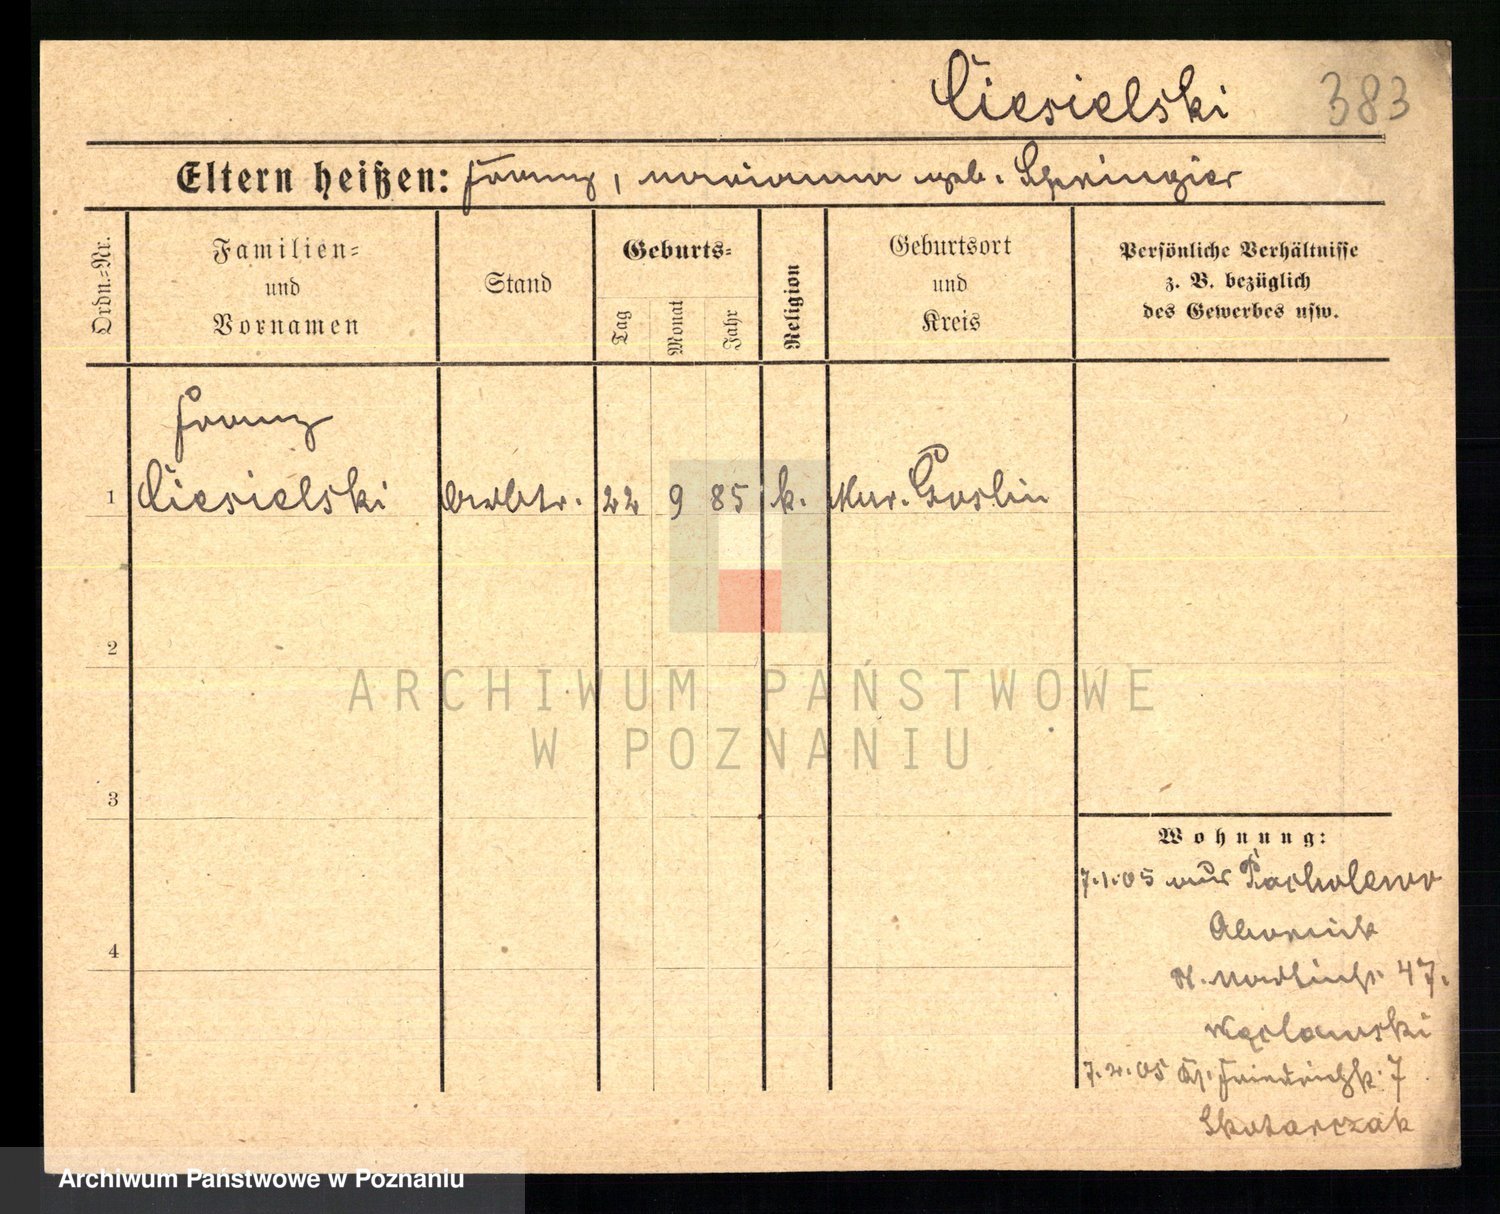 Ciesielski 383
Eltern heißen: Franz, Marianna geb. Springier
Ordn.-Nr.
Familien-
und
Vornamen
Stand
Geburts-
Tag
Monat
Jahr
Religion
Geburtsort
und
Kreis
Persönliche Verhältnisse
z. B. bezüglich
des Gewerbes usw.
Franz
1 Ciesielski Arbtr. 22 9 85 k. Mur. Goslin
2
ARCHIWUM PAŃSTWOWE
W POZNANIU
3
Wohnung:
7.1.05 aus Pacholewo
4
Obornick
St. Martinstr. 47.
Węclawski
7.2.05 Friedrichstr. 7
Skotarczak
Archiwum Państwowe w Poznaniu